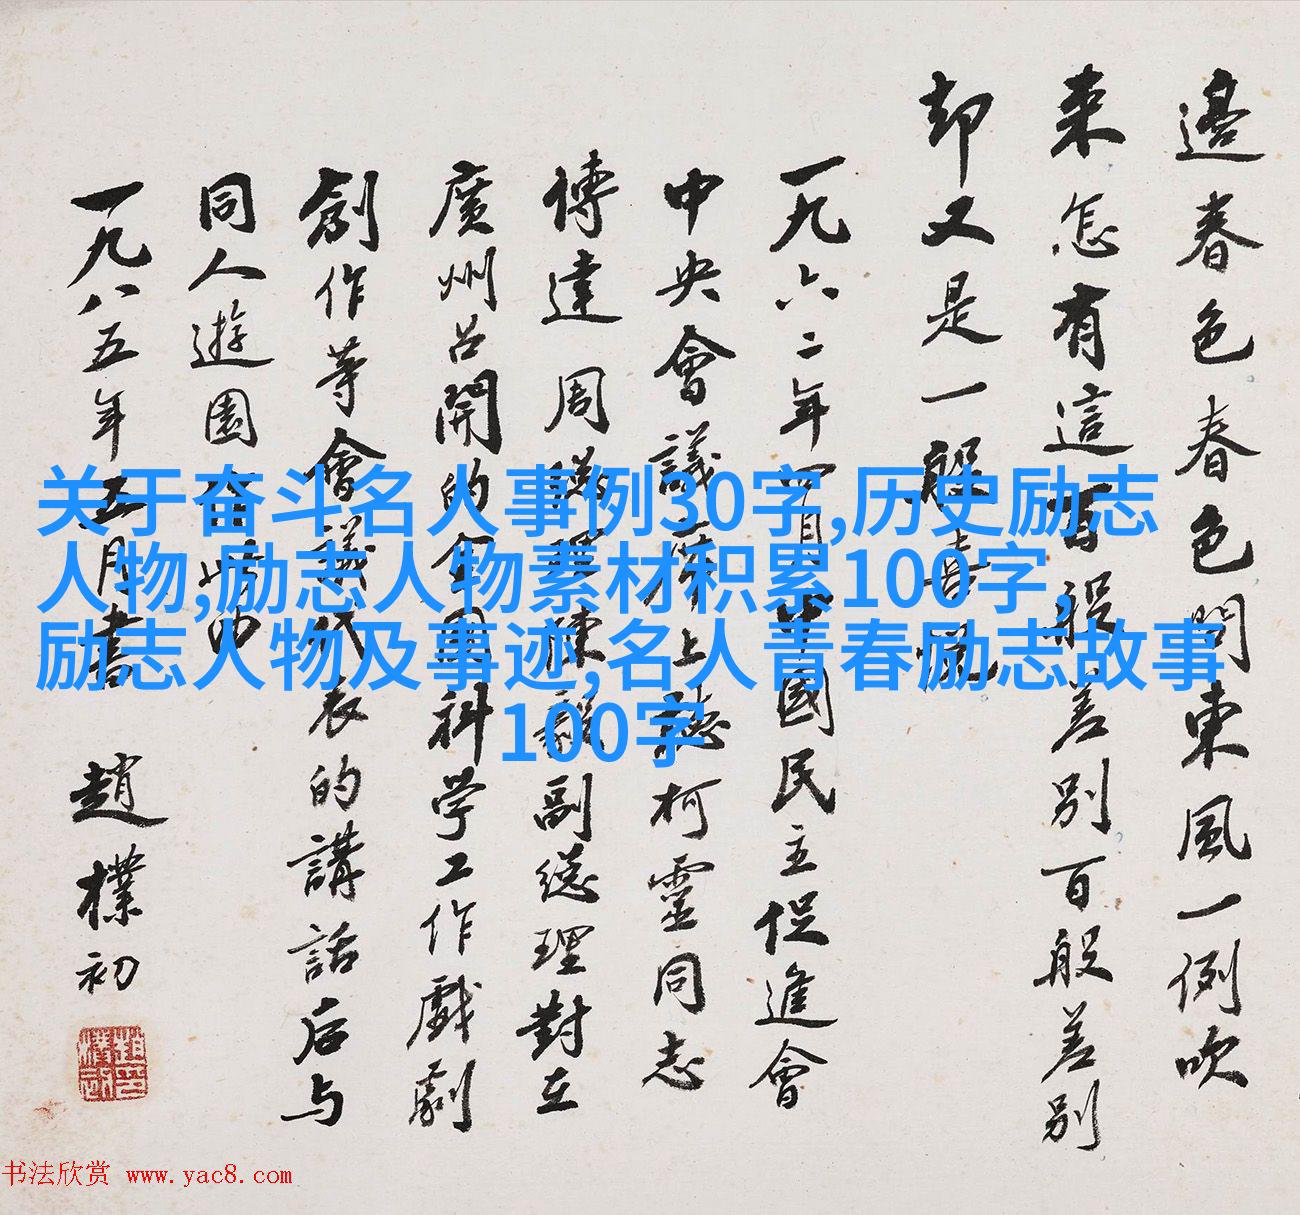 邊春色春色問東風一例吹
來怎有這百般差別百般差別
却又是一般喜悅
一九六二年四月中國民主促進會
中央會議席上聽柯靈同志
傳達周總理陳毅副總理對在
廣州召開的全国科学工作戲劇
創作等會議代表的講話后与
同人遊園
一九八五年五月書 趙樸初
趙樸初印
关于奋斗名人事例30字,历史励志
人物,励志人物素材积累100字,
励志人物及事迹,名人青春励志故事
100字
书法欣赏 www.yac8.com